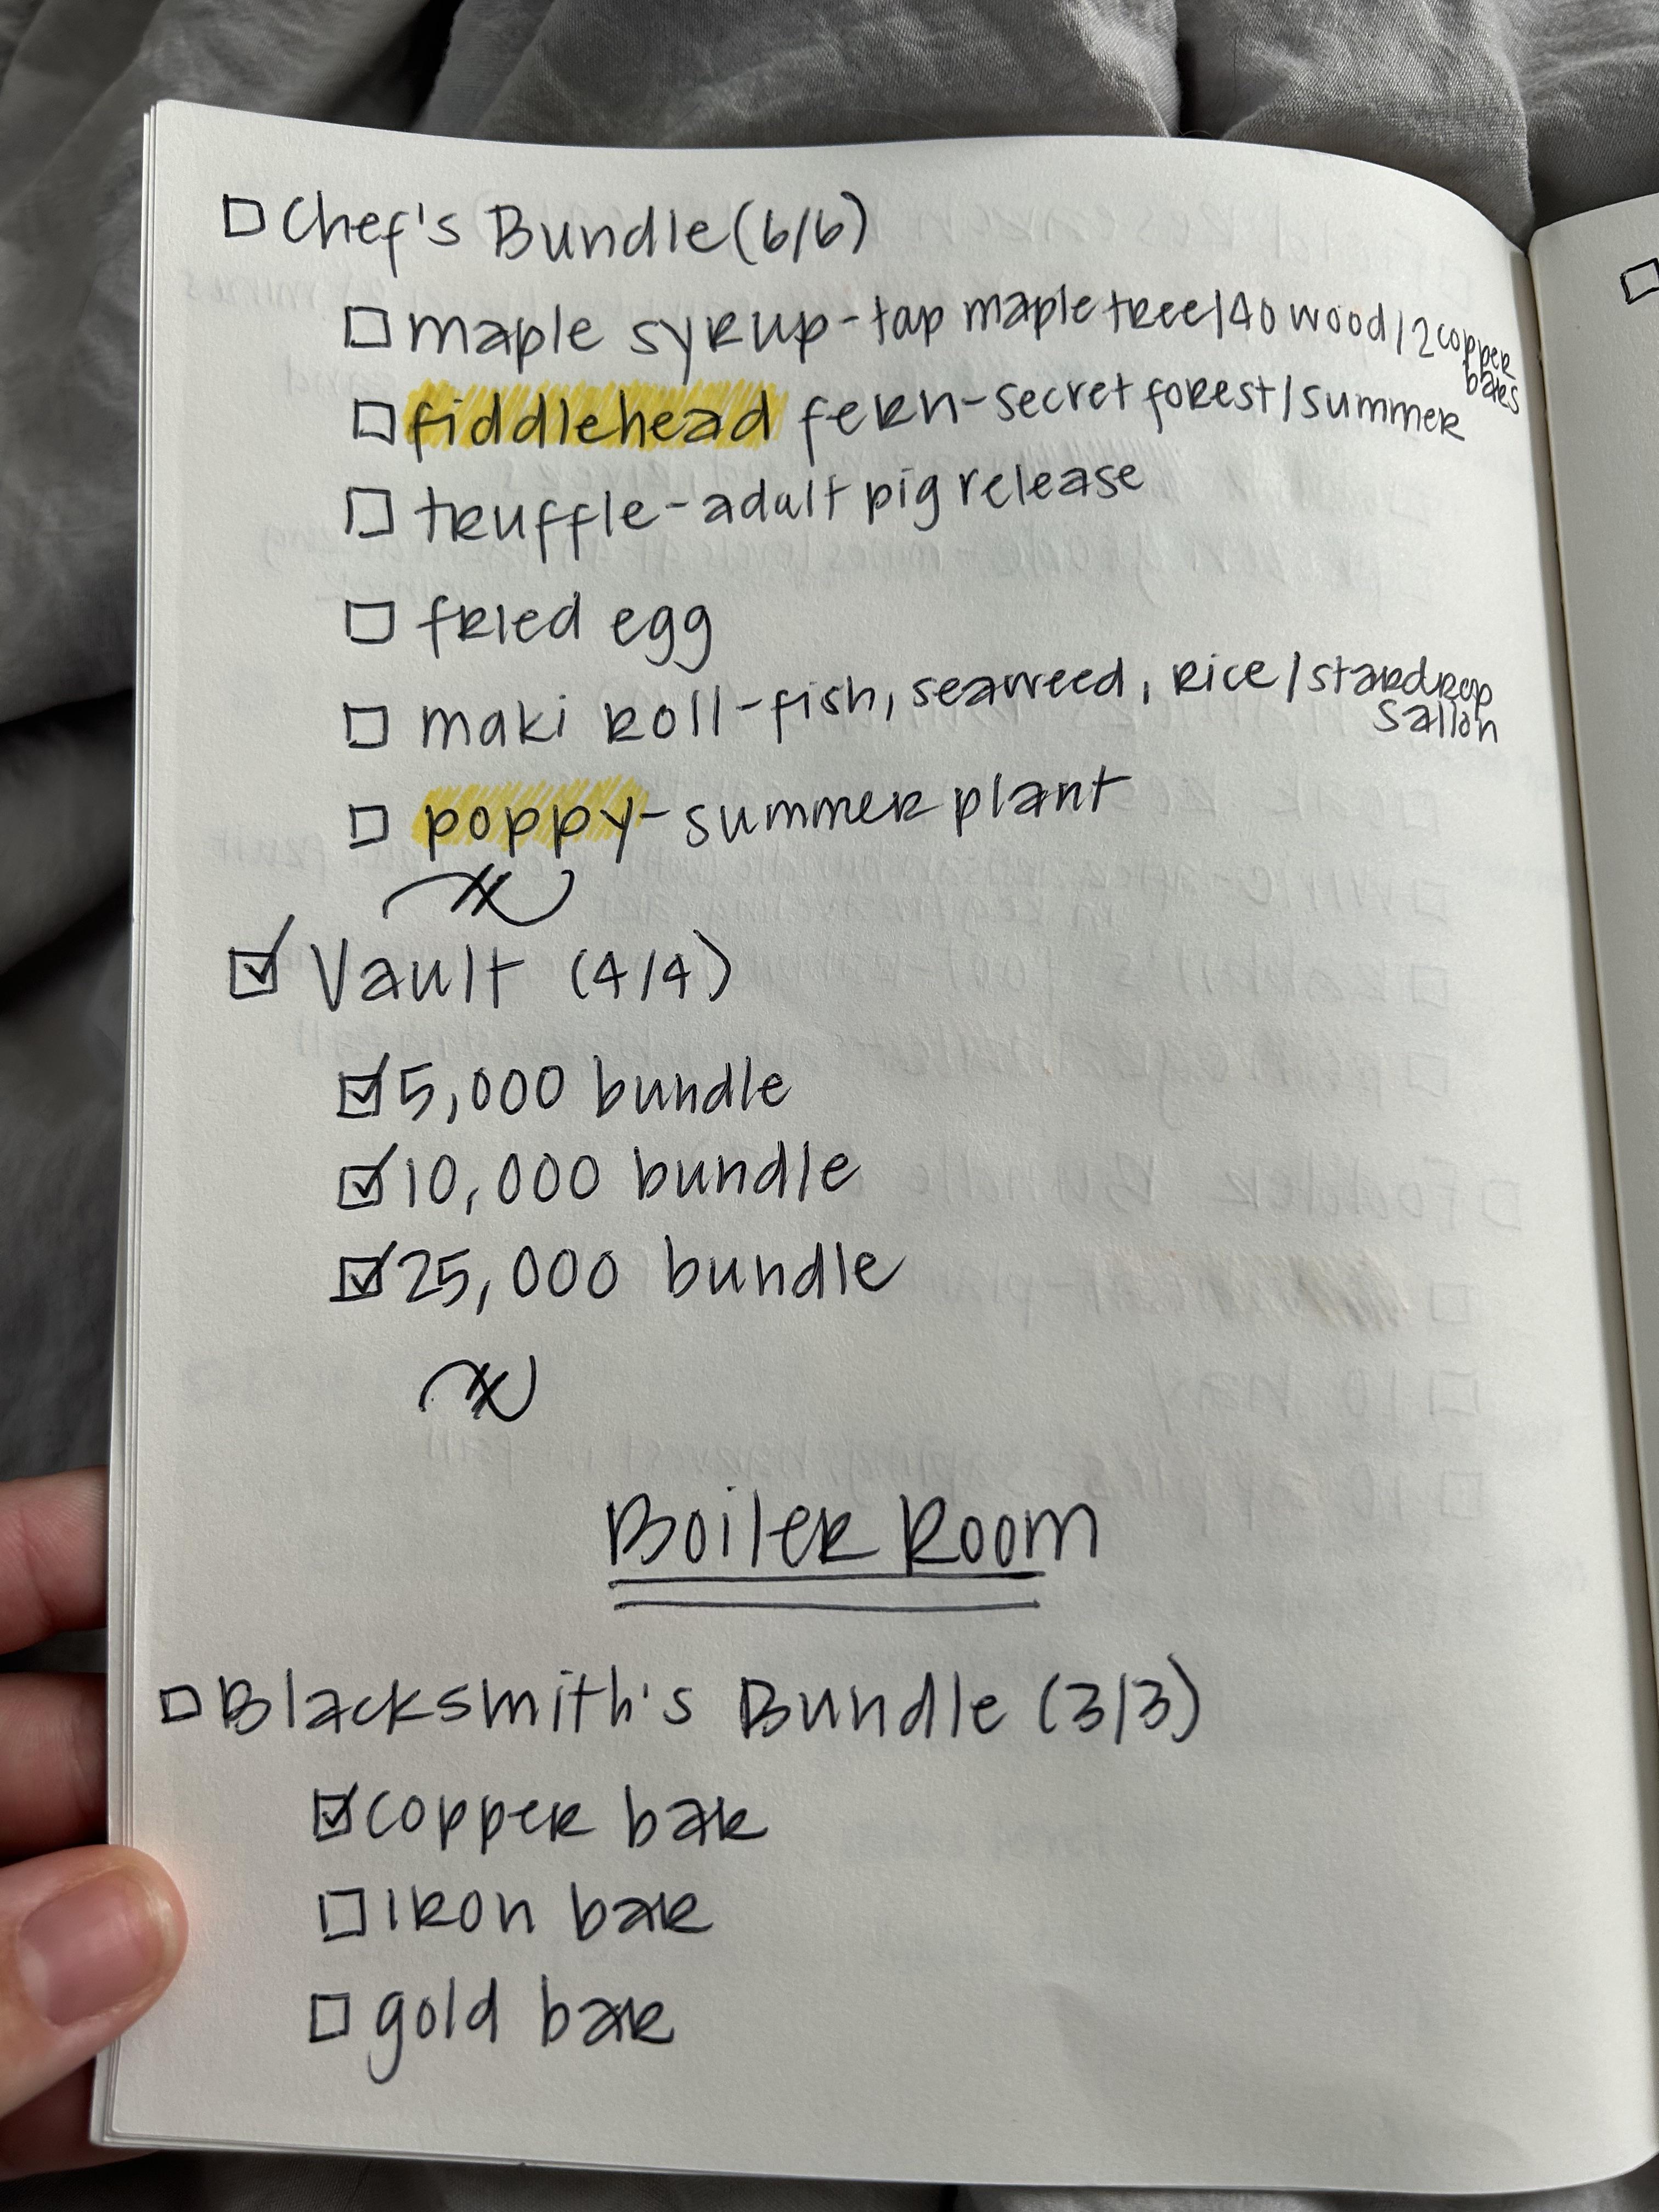 ☐ Chef's Bundle (6/6)
☐ maple syrup-tap maple tree/40 wood/2 copper
bars
☐ fiddlehead fern-secret forest/summer
☐ truffle-adult pig release
☐ fried egg
☐ maki roll-fish, seaweed, rice/stardrop
sallon
☐ poppy-summer plant
☑ Vault (4/4)
☑ 5,000 bundle
☑ 10,000 bundle
☑ 25,000 bundle
Boiler Room
☐ Blacksmith's Bundle (3/3)
☑ copper bar
☐ iron bar
☐ gold bar